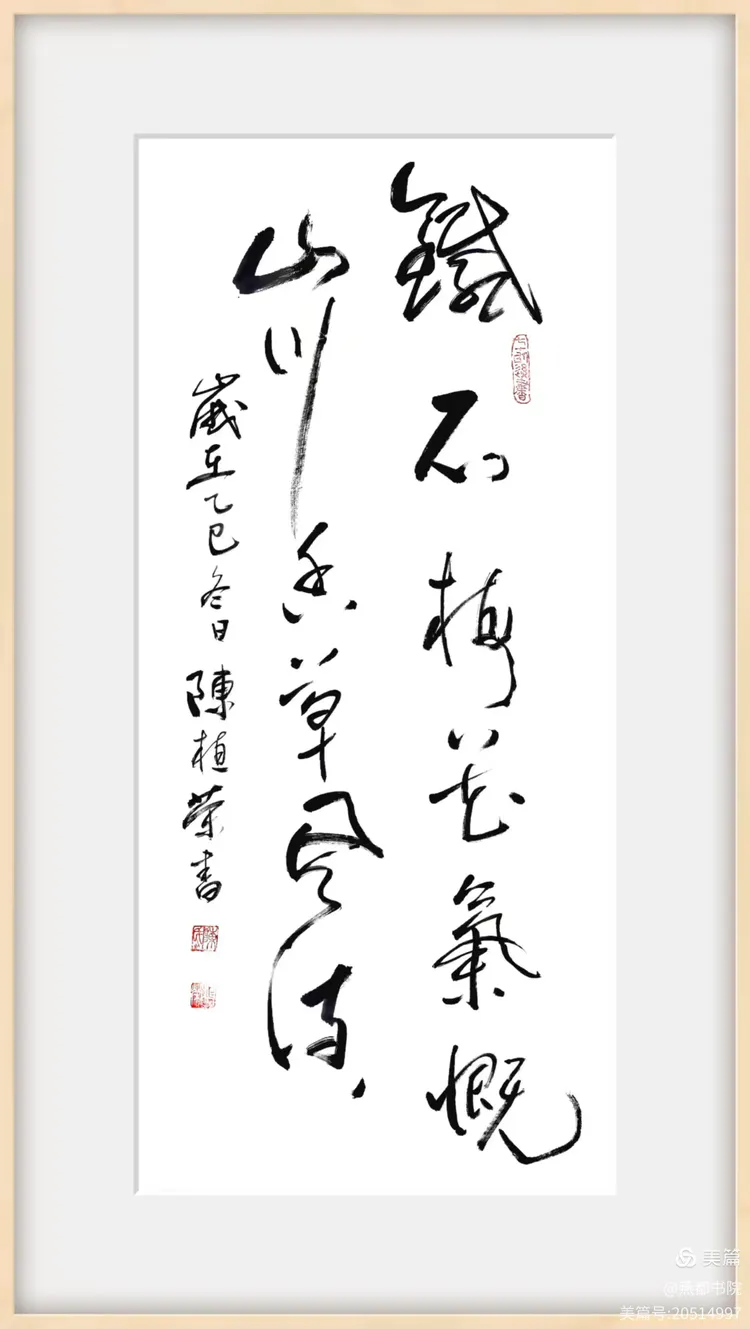 鐵石梅花氣概
山川香草風流
歲在乙巳冬日陳植榮書
美篇
@燕都书院
美篇号:20514997